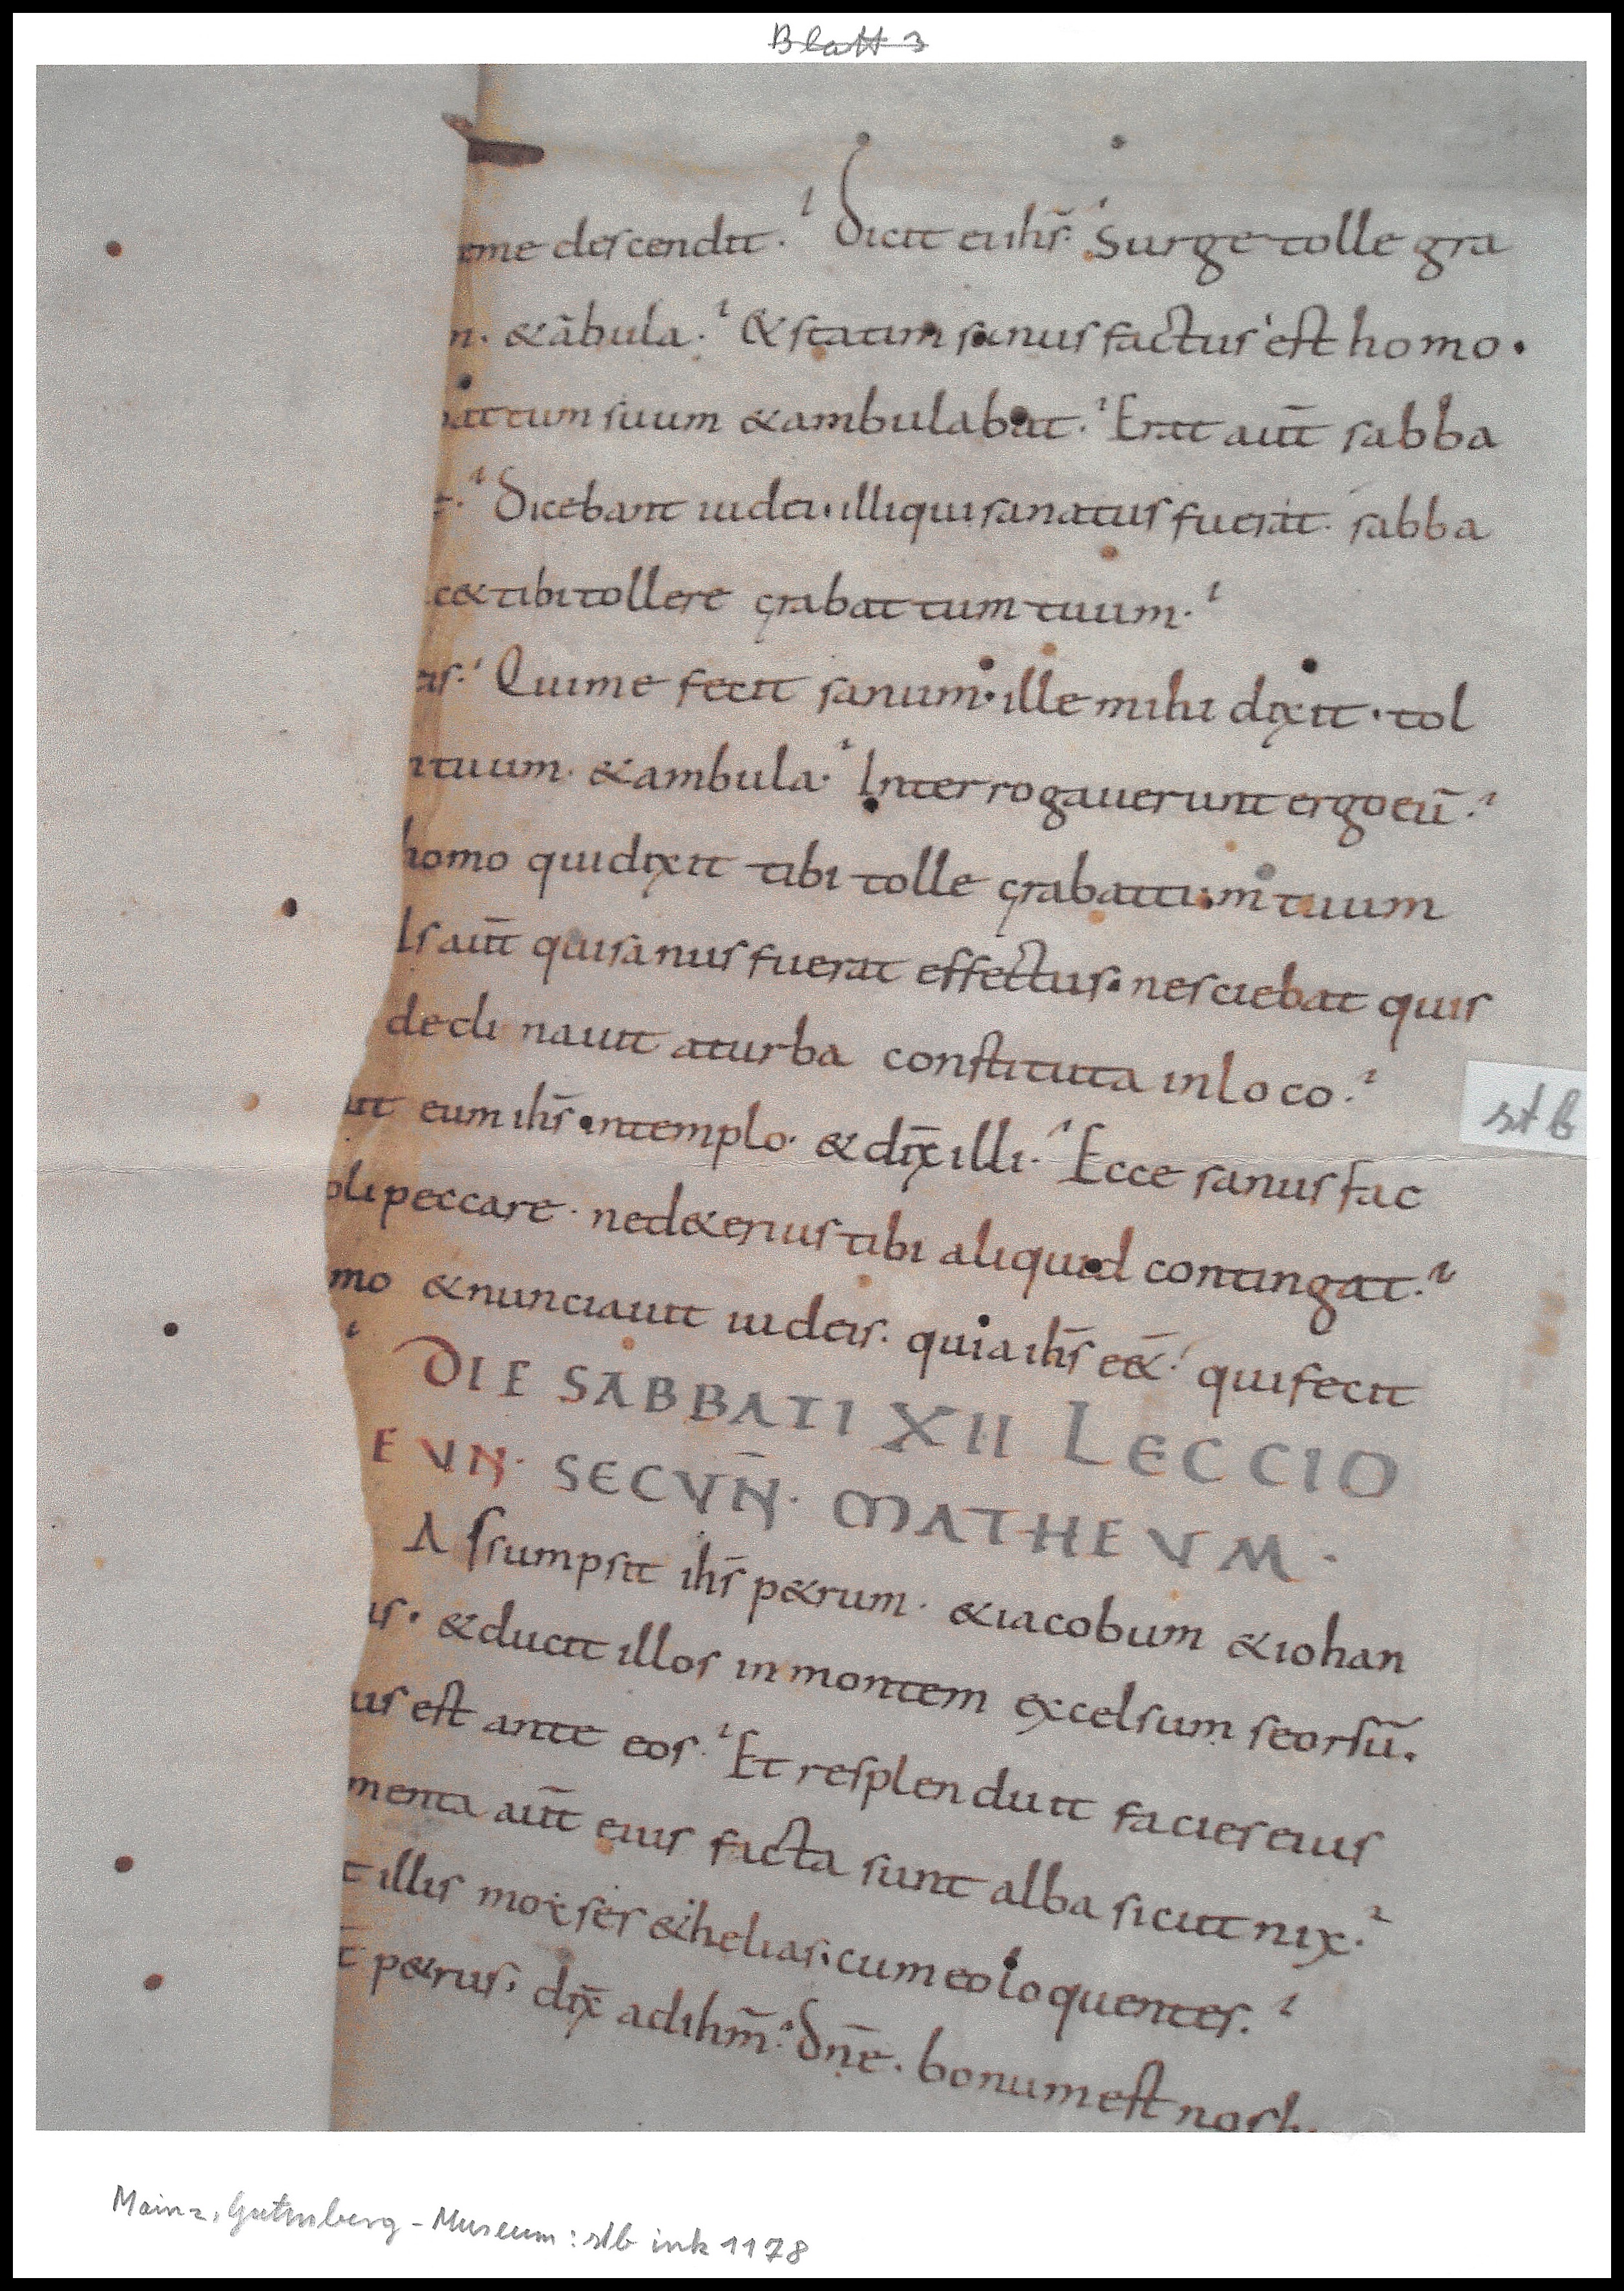 Blatt 3
me descendit. Dicit ei ihs̄. Surge tolle gra
n. & ābula. & statim sanus factus est homo.
battum suum & ambulabat. Erat aut̄ sabba
t. Dicebant iudei. illi qui sanatus fuerat. sabba
c& tibi tollere grabattum tuum.
eis. Qui me fecit sanum. ille mihi dixit. tol
tuum. & ambula. Interrogauerunt ergo eū.
homo qui dixit tibi tolle grabattum tuum
Is aut̄ qui sanus fuerat effectus. nesciebat quis
declinauit a turba constituta in loco.
it eum ihs̄ in templo. & dix̄ illi. Ecce sanus fac
oli peccare. ne d&erius tibi aliquid contingat.
mo & nunciauit iudeis. quia ihs̄ ee&̄. qui fecit
DIE SABBATI XII LECCIO
EVN. SECVN̄. MATHEVM.
Assumpsit ihs̄ p&rum. & iacobum & iohan
is. & ducit illos in montem excelsum seorsū.
us est ante eos. Et resplenduit facies eius
menta aut̄ eius facta sunt alba sicut nix.
t illis moyses & helias. cum eo loquentes.
t̄ p&rus. dix̄ ad ihm̄. Dnē. bonum est nos
st b
Mainz, Gutenberg-Museum: stb ink 1178